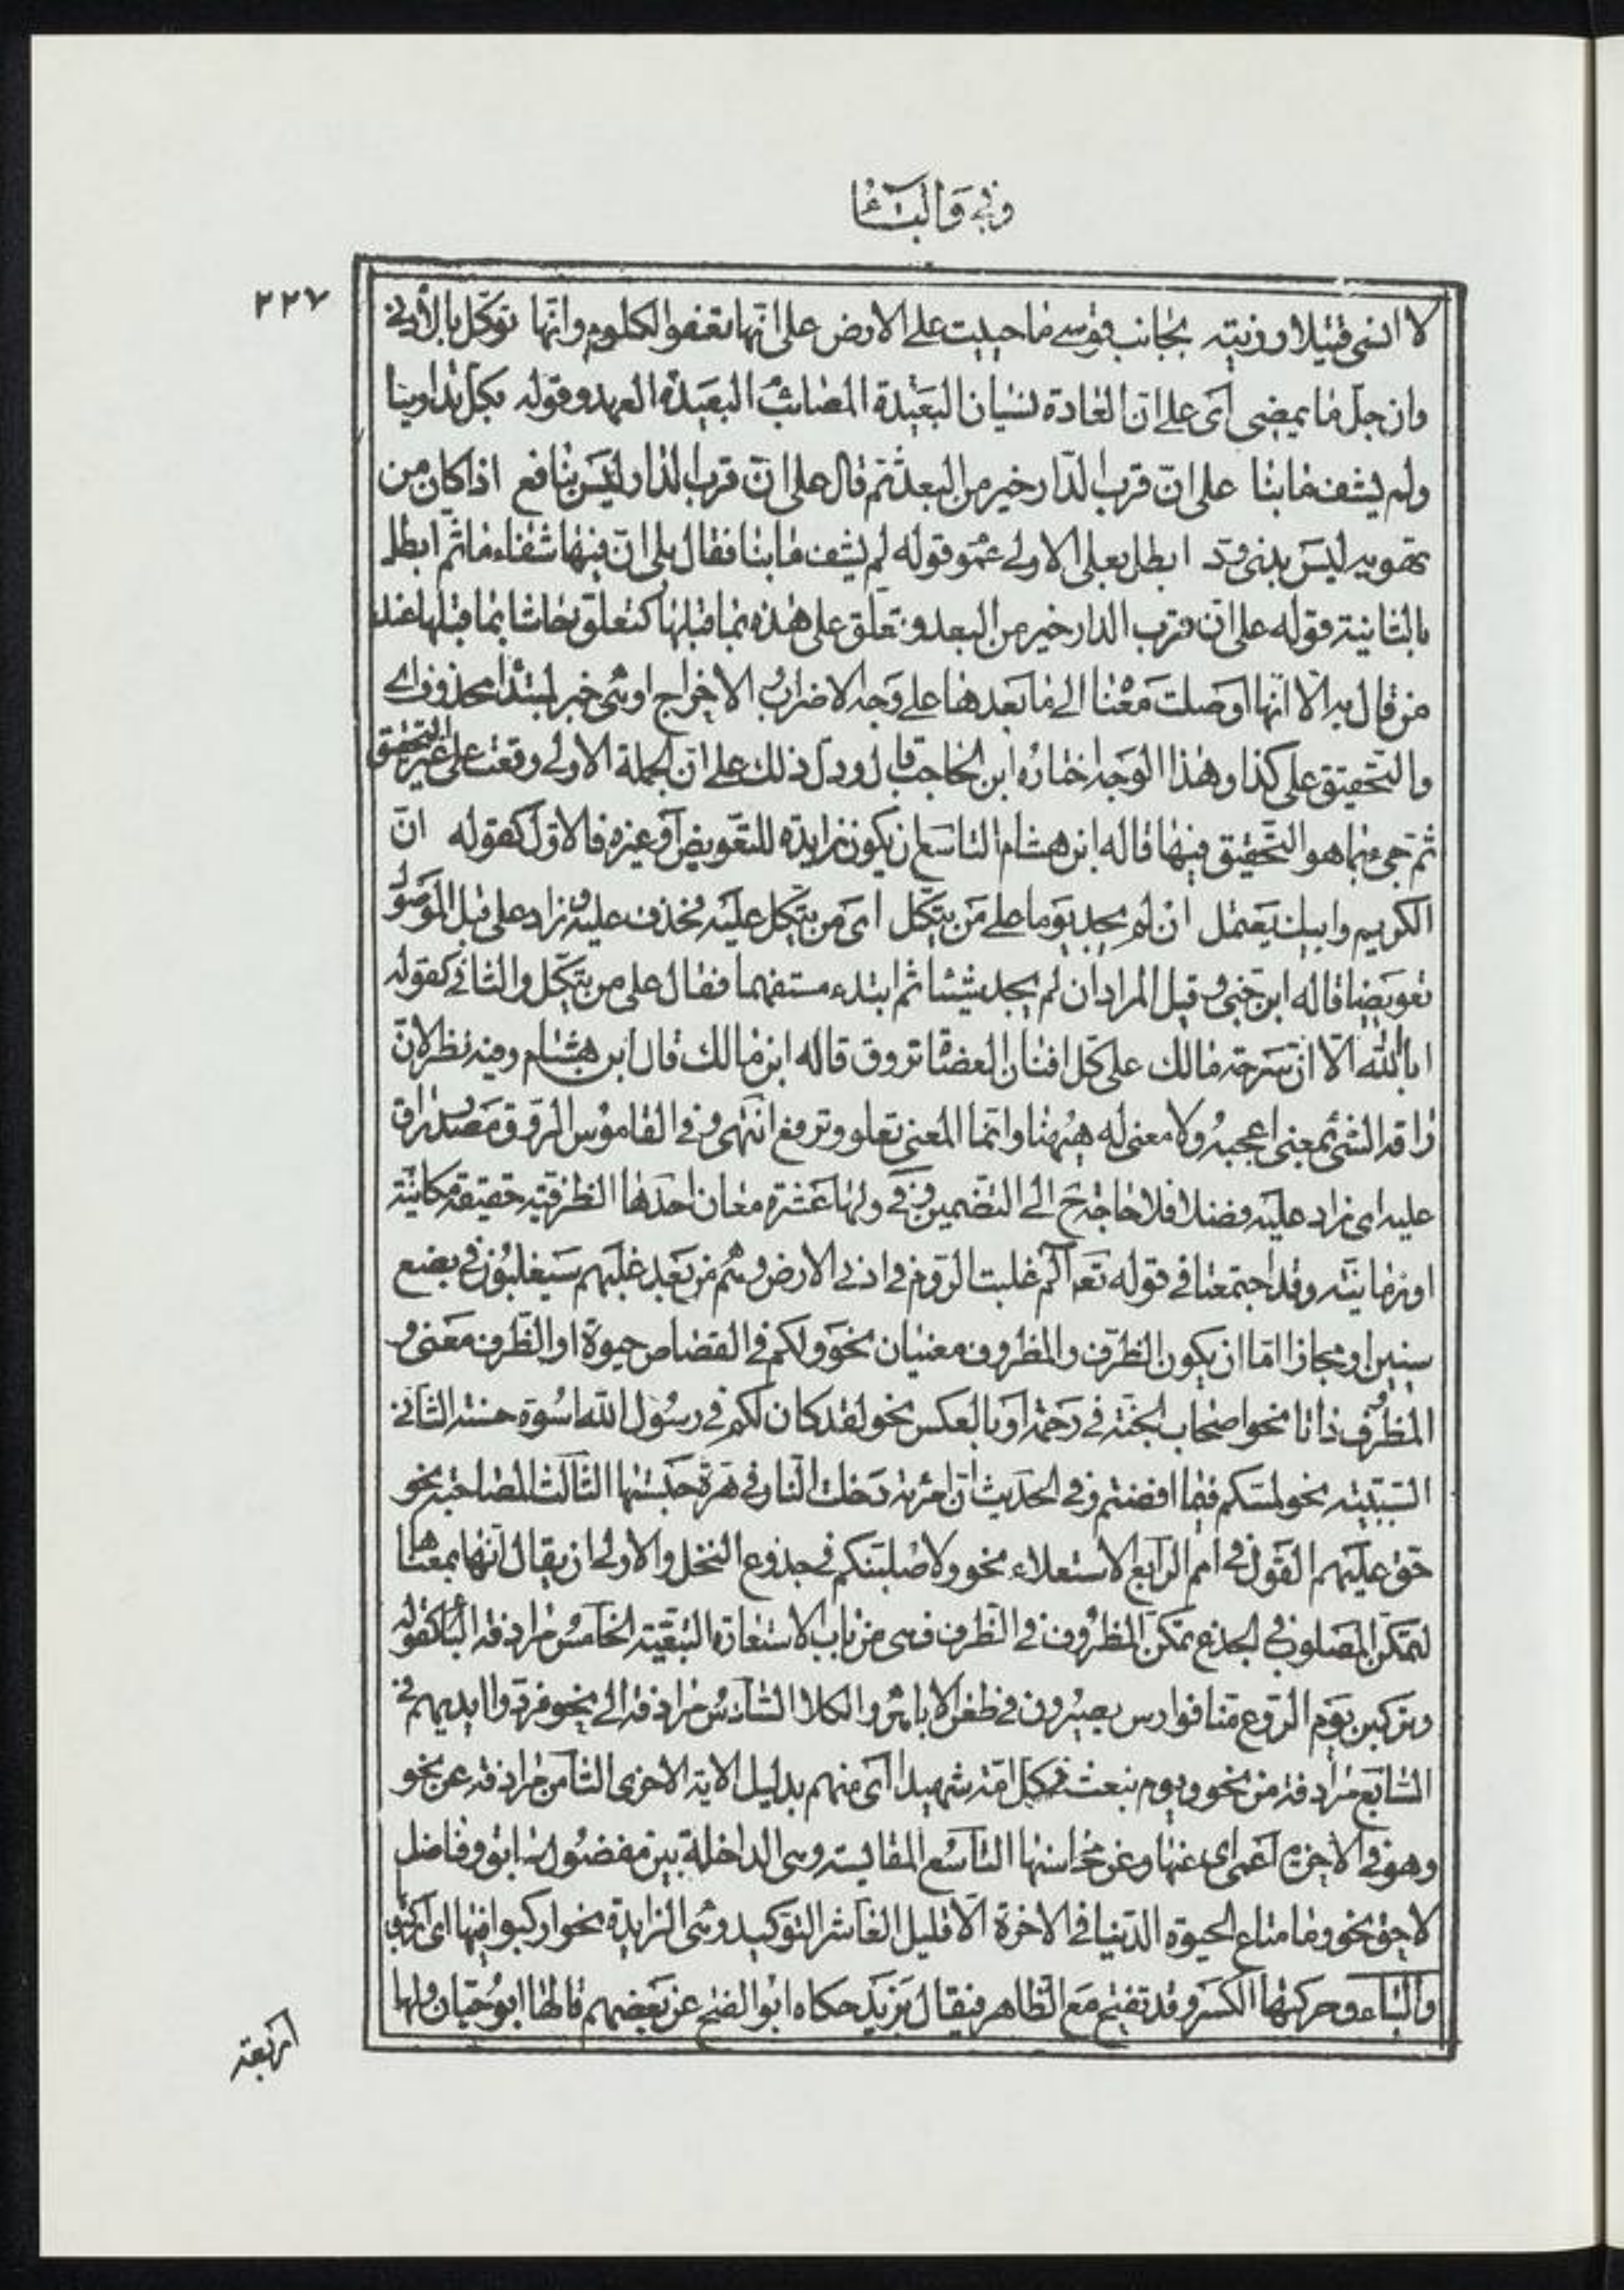 وفي والباء
٢٢٧
لا انسى قتيلا رزيته بجانب قوسى ما حييت على الارض على انّها تعفو الكلوم وانّما توكّل بالأدنى
وان جلّ ما يمضى اى على انّ العادة نسيان البعيدة المصائب البعيدة العهد وقوله بكلّ تداوينا
ولم يشف ما بنا على انّ قرب الدّار خير من البعد ثم قال على انّ قرب الدّار ليس بنافع اذا كان من
تهويه ليس بذى ودّ ابطل بعلى الاولى عموم قوله لم يشف ما بنا فقال بلى انّ فيها شفاء ما ثم ابطل
بالثانية قوله على انّ قرب الدار خير من البعد وتعلّق على هذه بما قبلها كتعلق حاشا بما قبلها عند
من قال به الّا انّها اوصلت معناه الى ما بعدها على وجه الاضراب والاخراج او هى خبر لمبتدأ محذوف اى
والتّحقيق على كذا وهذا الوجه اختاره ابن الحاجب قال ودلّ ذلك على انّ الجملة الاولى وقعت على غير التّحقيق
ثم جىء بما هو التّحقيق فيها قاله ابن هشام التاسع ان يكون زايدة للتعويض او غيره فالاوّل كقوله انّ
الكريم وابيك يعتمل ان لم يجد يوما على من يتّكل اى من يتّكل عليه فحذف عليه وزاد على قبل الموصول
تعويضا قاله ابن جنّى وقيل المراد ان لم يجد شيئا ثم ابتدء مستفهما فقال على من يتّكل والثانى كقوله
ابا الله الّا انّ سرحة مالك على كلّ افنان العضاة تروق قاله ابن مالك قال ابن هشام وفيه نظر لانّ
راقه الشىء بمعنى اعجبه ولا معنى له ههنا وانّما المعنى تعلو وترفع انتهى وفى القاموس الرّوق مصدر راق
عليه اى زاد عليه فضلا فلا حاجة ح الى التضمين وفى ولها عشرة معان احدها الظرفيّة حقيقة مكانيّة
او زمانيّة وقد اجتمعتا فى قوله تعه آلم غلبت الرّوم فى ادنى الارض وهم من بعد غلبهم سيغلبون فى بضع
سنين او مجازا امّا ان يكون الظّرف والمظروف معنيان نحو ولكم فى القصاص حيوة او الظّرف معنى و
المظروف ذاتا نحو اصحاب الجنّة فى رحمة او بالعكس نحو لقد كان لكم فى رسول الله اسوة حسنة الثانى
السّببيّة نحو لمسّكم فيما افضتم وفى الحديث انّ امرئة دخلت النّار فى هرّة حبستها الثالث المصاحبة نحو
حقّ عليهم القول فى امم الرّابع الاستعلاء نحو ولاصلبنّكم فى جذوع النخل والاولى ان يقال انّها بمعناها
لتمكّن المصلوب فى الجذع تمكّن المظروف فى الظّرف فهى من باب الاستعارة التبعيّة الخامس مرادفة الباء كقوله
وتركبن يوم الرّوع منّا فوارس بصيرون فى طعن الاباهر والكلا السّادس مرادفة الى نحو فردّوا ايديهم فى
السّابع مرادفة من نحو ويوم نبعث فى كل امّة شهيدا اى منهم بدليل الاية الاخرى الثامن مرادفة عن نحو
وهو فى الاخرة اعمى اى عنها وعن محاسنها التاسع المقايسة وهى الداخلة بين مفضول سابق وفاضل
لاحق نحو وما متاع الحيوة الدّنيا فى الاخرة الّا قليل العاشر التوكيد وهى الزايدة نحو اركبوا فيها اى اركبوها
والباء وحركتها الكسر وقد تفتح مع الظاهر فيقال بَزيد حكاه ابو الفتح عن بعضهم قالها ابو حيّان ولها
اربعة